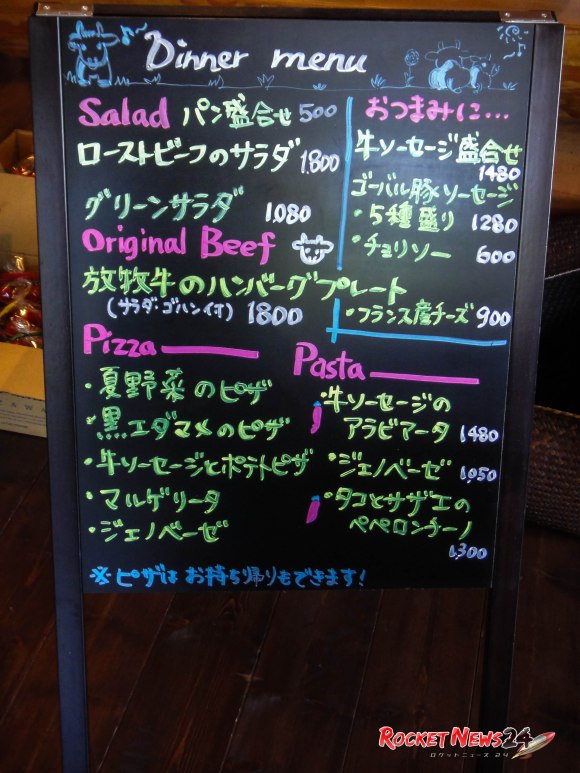 Dinner menu
Salad パン盛合せ 500
ローストビーフのサラダ 1.800
グリーンサラダ 1.080
おつまみに…
牛ソーセージ盛合せ
1480
ゴーバル豚ソーセージ
・5種盛り 1280
・チョリソー 600
・フランス産チーズ 900
Original Beef
放牧牛のハンバーグプレート
(サラダ・ゴハン付) 1800
Pizza
・夏野菜のピザ
・黒エダマメのピザ
・牛ソーセージとポテトピザ
・マルゲリータ
・ジェノベーゼ
Pasta
・牛ソーセージの
アラビアータ 1,480
・ジェノベーゼ 1,050
・タコとサザエの
ペペロンチーノ
1,300
※ピザはお持ち帰りもできます!
ROCKET NEWS24
ロケットニュース24